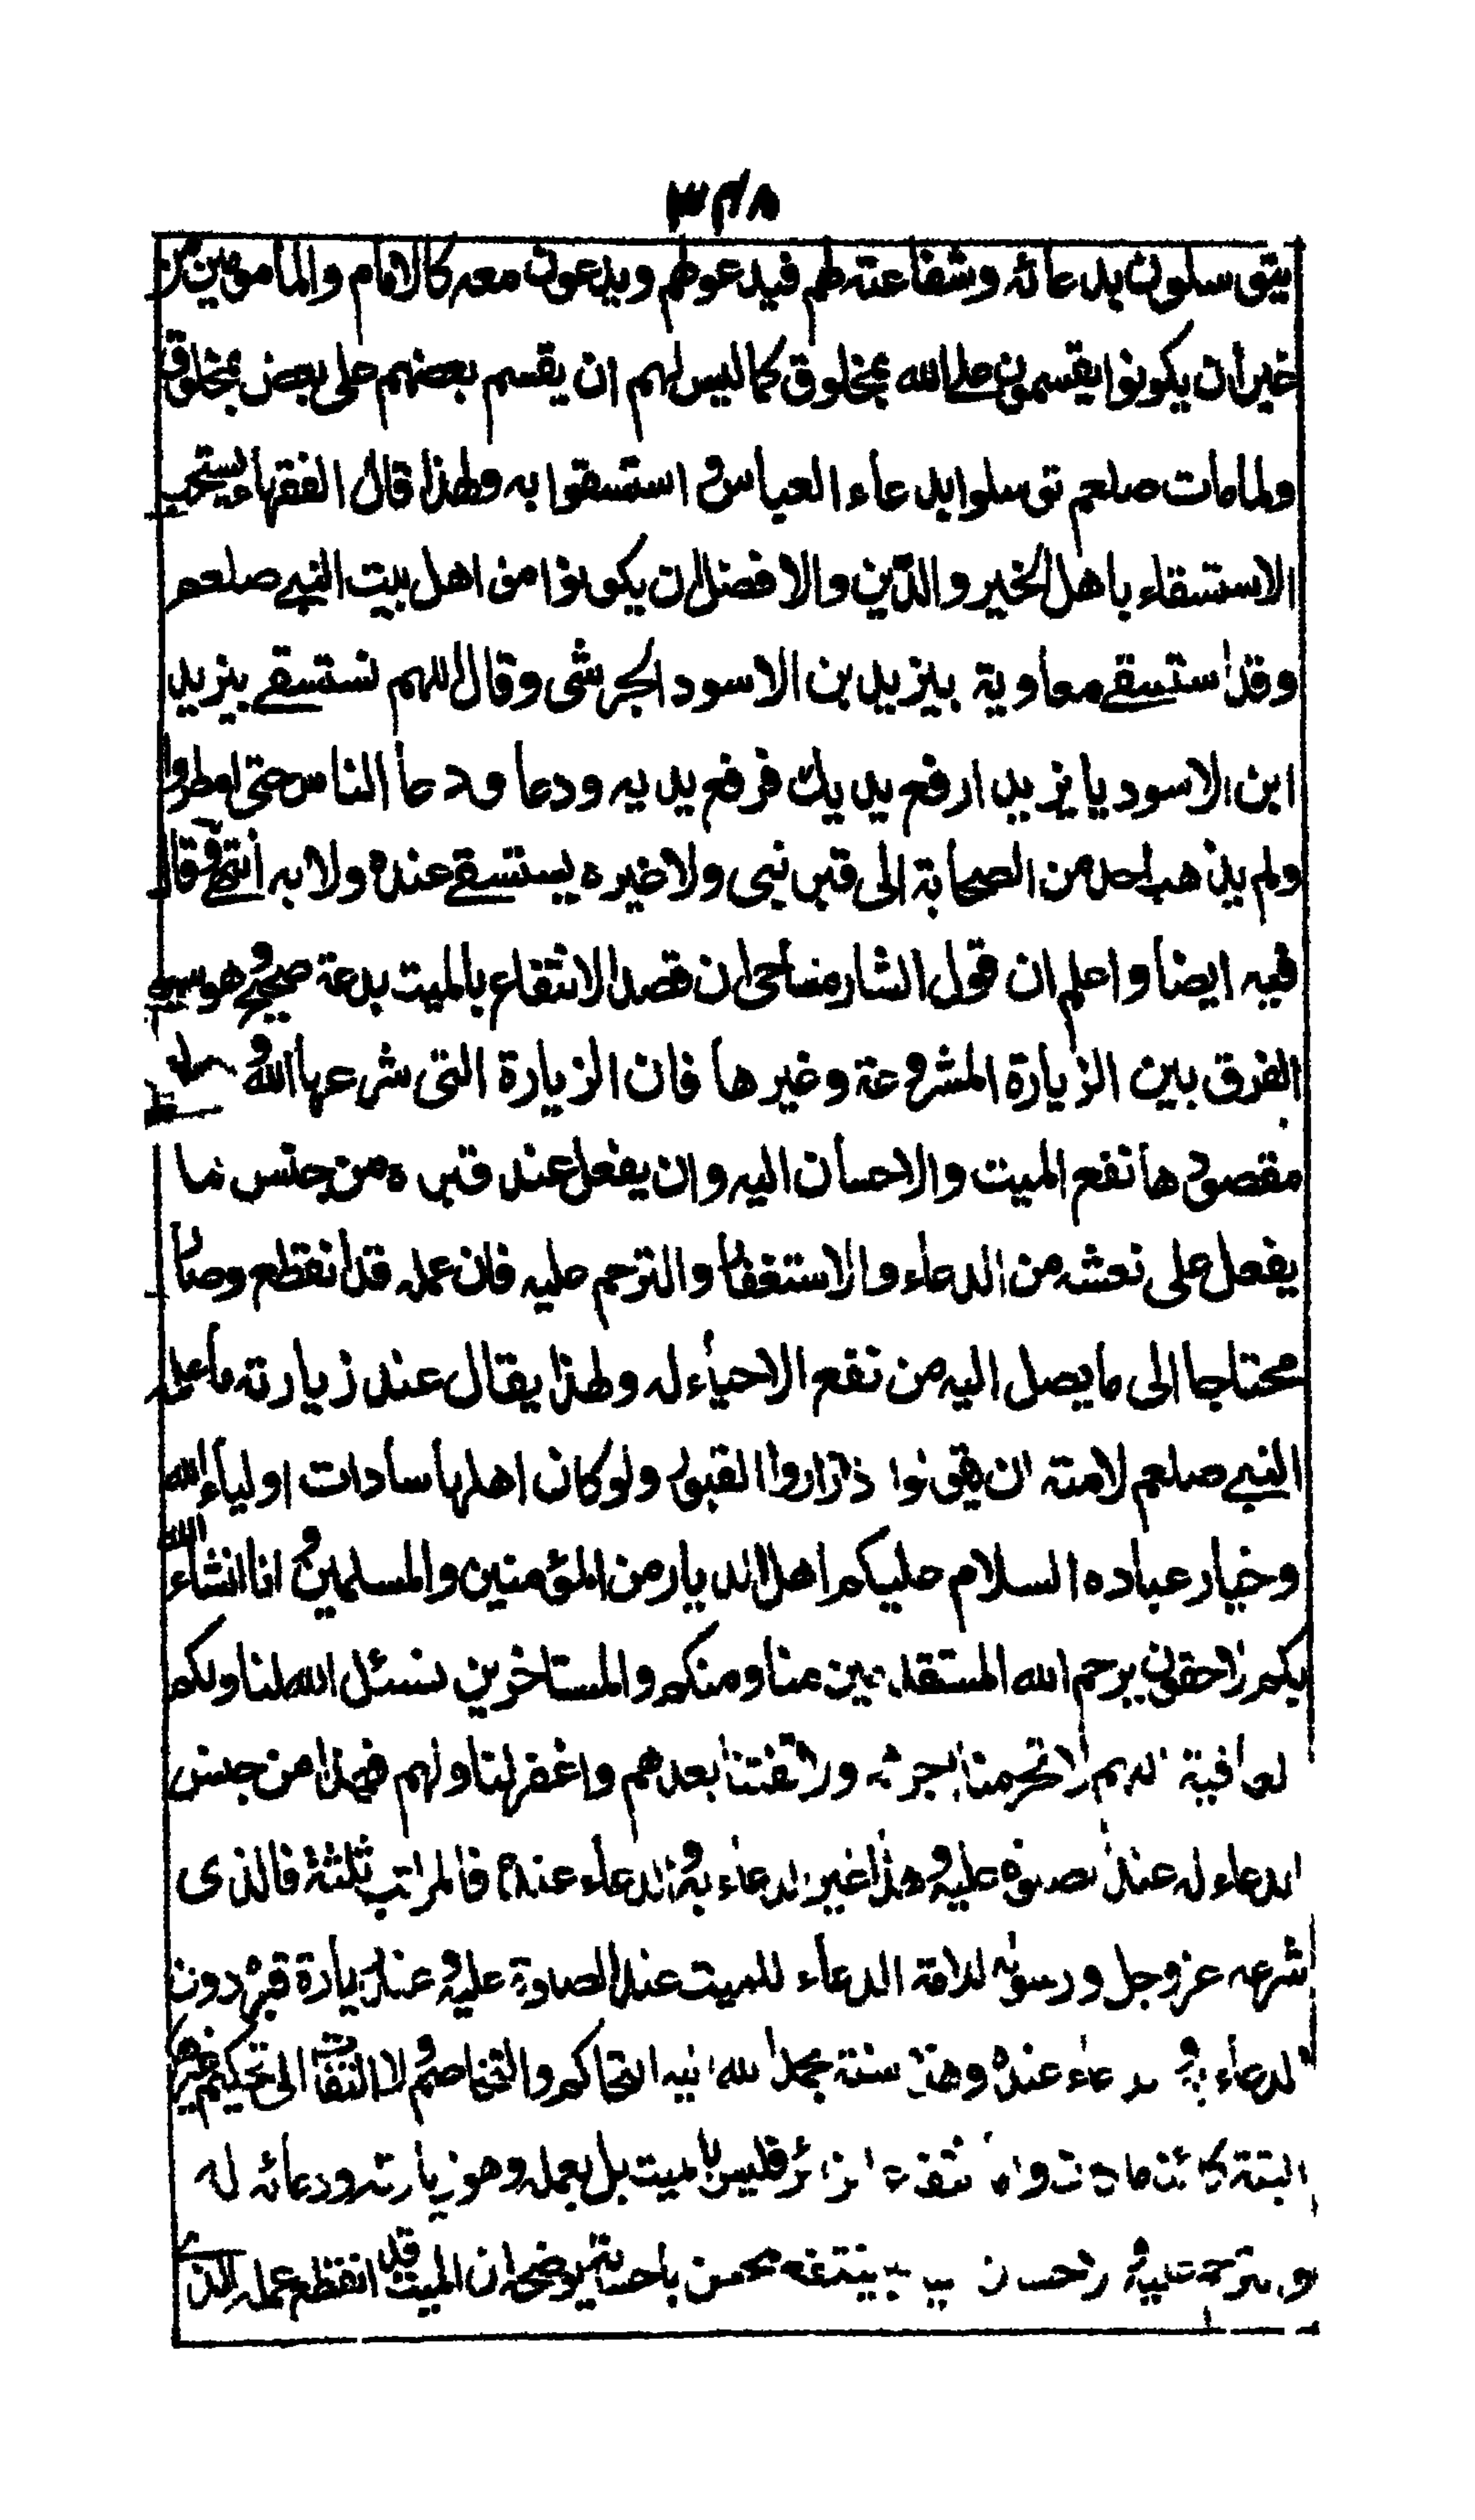 ٣٤٨
يتوسلون بدعائه وشفاعته لهم فيدعو لهم ويدعون معه كالامام والمأمومين من
غير ان يكونوا يقسمون على الله بمخلوق كما ليس لهم ان يقسم بعضهم على بعض بمخلوق
ولما مات صلعم توسلوا بدعاء العباس و استسقوا به ولهذا قال الفقهاء يستحب
الاستسقاء باهل الخير والدّين والافضل ان يكونوا من اهل بيت النبي صلعم
وقد استسقى معاوية بيزيد بن الاسود الجرشى وقال اللهم نستسقى بيزيد
ابن الاسود يا يزيد ارفع يديك فرفع يديه ودعا ودعا الناس حتى امطروا
ولم يذهب احد من الصحابة الى قبر نبى ولا غيره يستسقى عنده ولا به انتهى وقال
فيه ايضا واعلم ان قول الشارمساحى ان قصد الانتفاع بالميت بدعة صحيح وهو سر
الفرق بين الزيارة المشروعة وغيرها فان الزيارة التى شرعها الله و
مقصودها نفع الميت والاحسان اليه وان يفعل عند قبره من جنس ما
يفعل على نعشه من الدعاء والاستغفار والترحم عليه فان عمله قد انقطع وصار
محتاجا الى ما يصل اليه من نفع الاحياء له ولهذا يقال عند زيارته ما علمه
النبي صلعم لامته ان يقولوا اذا زاروا القبور ولو كان اهلها سادات اولياء الله
وخيار عباده السلام عليكم اهل الديار من المؤمنين والمسلمين و انا انشاء الله
بكم لاحقون يرحم الله المستقدمين منا ومنكم والمستاخرين نسئل الله لنا ولكم
العافية اللهم لا تحرمنا اجرهم ولا تفتنا بعدهم واغفر لنا ولهم فهذا من جنس
الدعاء له عند الصلوة عليه و هذا غير الدعاء به و الدعاء عنده فالمراتب ثلثة فالذى
شرعه عز وجل ورسوله للامة الدعاء للميت عند الصلوة عليه و عند زيارة قبره دون
الدعاء به و الدعاء عنده وهذه سنة بحمد الله اليه التحاكم والتخاصم و لا التفات الى تحكيم غيره
البتة كائنا ما كان وان الزائر فليس بالميت بل بعمله وهو زيارته ودعائه له
والترحم عليه والاحسان ينتفع المحسن باحسانه يوضحه ان الميت قد انقطع عمله الذى